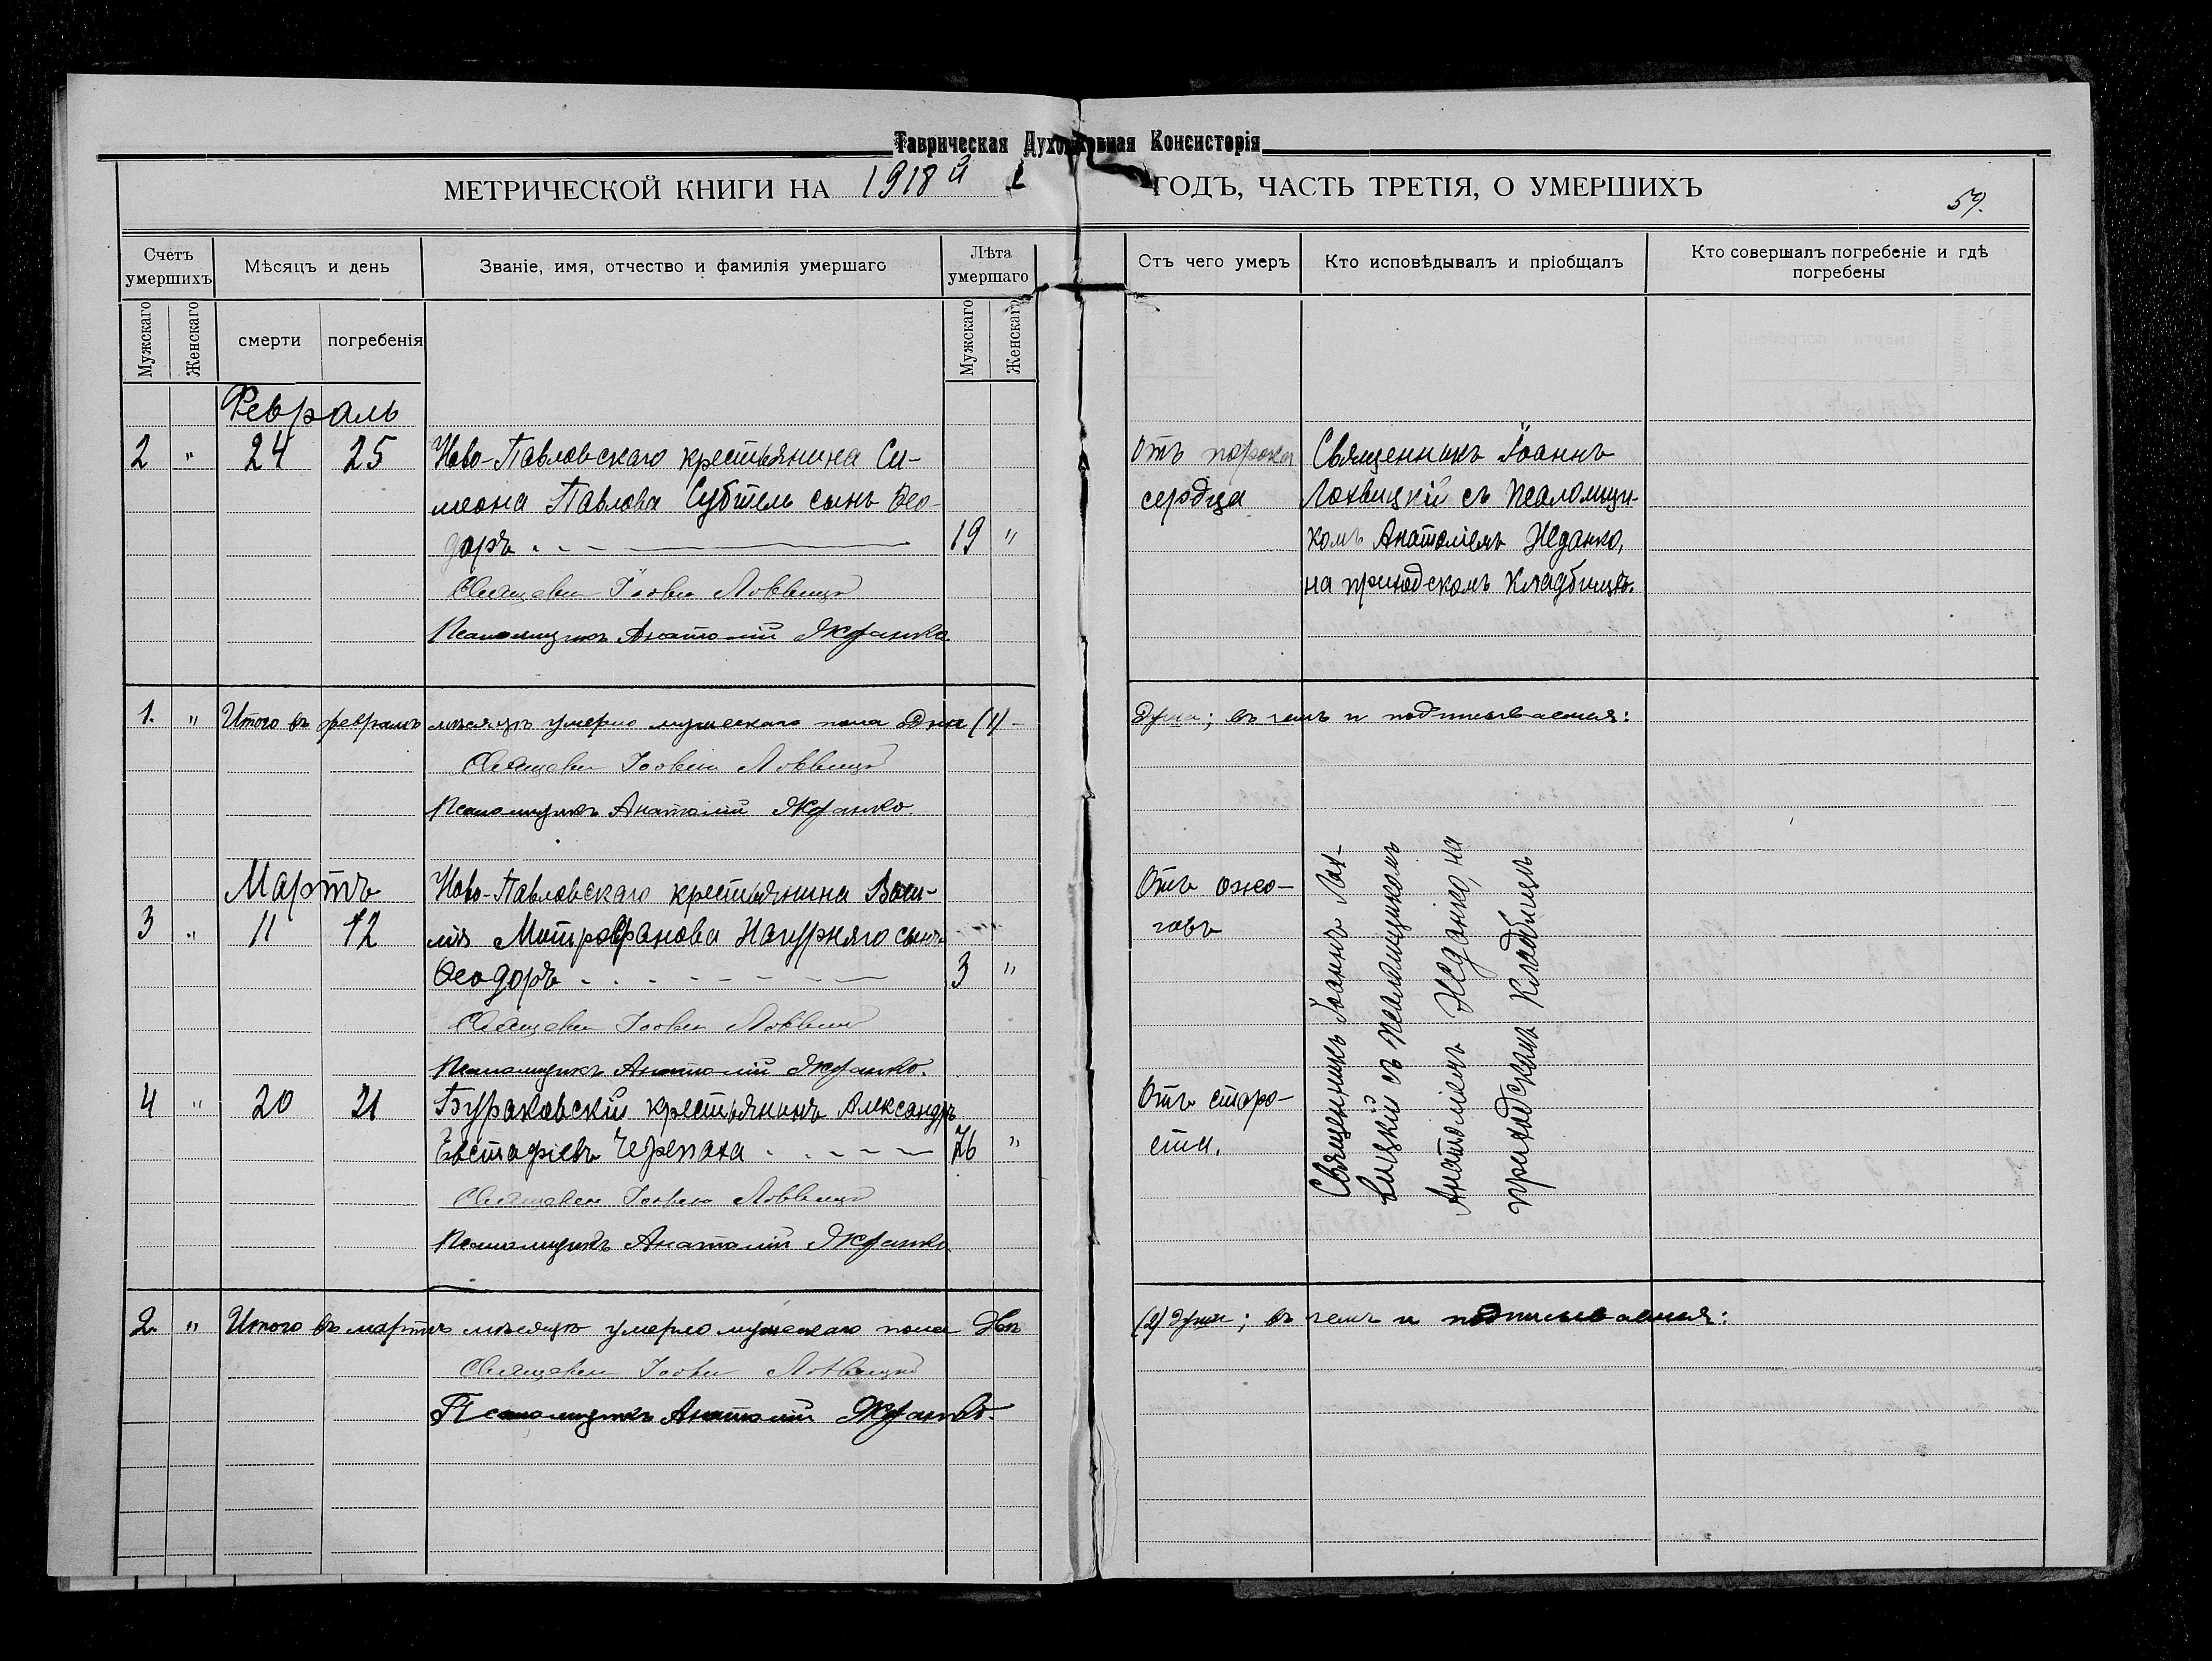 Таврическая Духовная Консисторія
МЕТРИЧЕСКОЙ КНИГИ НА 1918й ГОДЪ, ЧАСТЬ ТРЕТІЯ, О УМЕРШИХЪ
59.
Счетъ умершихъ
Мѣсяцъ и день
Званіе, имя, отчество и фамилія умершаго
Лѣта умершаго
Отъ чего умеръ
Кто исповѣдывалъ и пріобщалъ
Кто совершалъ погребеніе и гдѣ погребены
Мужскаго
Женскаго
смерти
погребенія
Мужскаго
Женскаго
Февраль
2 " 24 25 Ново-Павловскаго крестьянина Си- Отъ порока Священникъ Іоаннъ
меона Павлова Субтель сынъ Ѳео- сердца Лохвицкій съ Псаломщи-
доръ 19 " комъ Анатоліемъ Жданко,
Священникъ Іоаннъ Лохвицкій на приходскомъ кладбищѣ.
Псаломщикъ Анатолій Жданко
1. " Итого въ февралѣ мѣсяцѣ умерло мужескаго пола одна (1) душа; въ чемъ и подписываемся:
Священникъ Іоаннъ Лохвицкій
Псаломщикъ Анатолій Жданко.
Мартъ Ново-Павловскаго крестьянина Васи- Отъ ожо-
3 " 11 12 лія Митрофанова Нагурняго сынъ говъ
Ѳеодоръ 3 "
Священникъ Іоаннъ Лохвицкій
Псаломщикъ Анатолій Жданко.
4 " 20 21 Бураковскій крестьянинъ Александръ Отъ старо-
Евстафіевъ Черепаха 76 " сти.
Священникъ Іоаннъ Лохвицкій
Псаломщикъ Анатолій Жданко
Священникъ Іоаннъ Лох-
вицкій съ Псаломщикомъ
Анатоліемъ Жданко, на
приходскомъ кладбищѣ
2. " Итого въ мартѣ мѣсяцѣ умерло мужескаго пола двѣ (2) души; въ чемъ и подписываемся:
Священникъ Іоаннъ Лохвицкій
Псаломщикъ Анатолій Жданко.